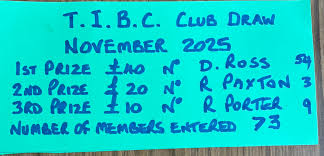 T.I.B.C. CLUB DRAW
NOVEMBER 2025
1ST PRIZE £40 Nº D. ROSS 54
2ND PRIZE £20 Nº R PAXTON 3
3RD PRIZE £10 Nº R PORTER 9
NUMBER OF MEMBERS ENTERED 73